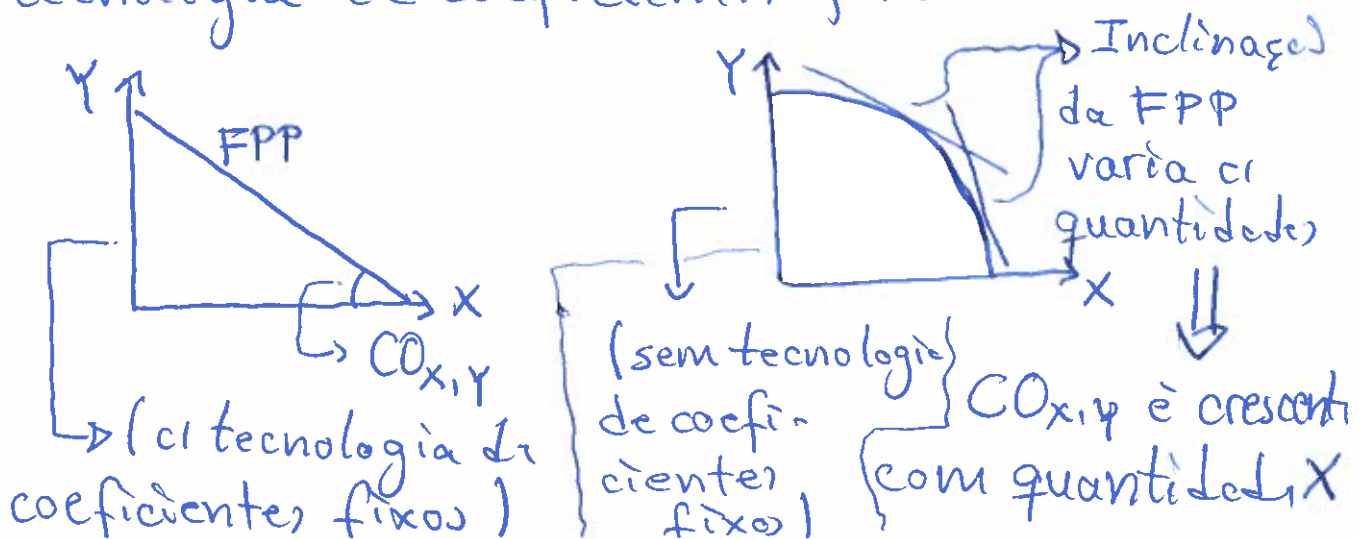 tecnologia de coeficientes
Y
FPP
X
CO_X,Y
(c/ tecnologia de
coeficientes fixos)
Y
X
Inclinação
da FPP
varia c/
quantidades
(sem tecnologia
de coefi-
cientes
fixos)
CO_X,Y è crescent
com quantidade X